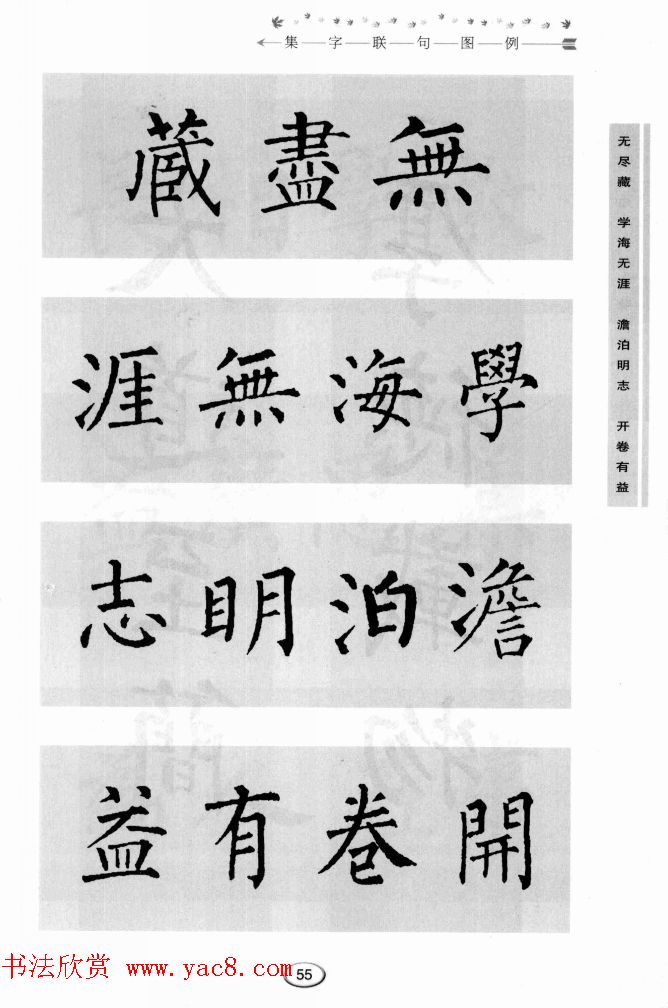 集字联句图例
無盡藏
學海無涯
澹泊明志
開卷有益
无尽藏 学海无涯 澹泊明志 开卷有益
书法欣赏 www.yac8.com
55